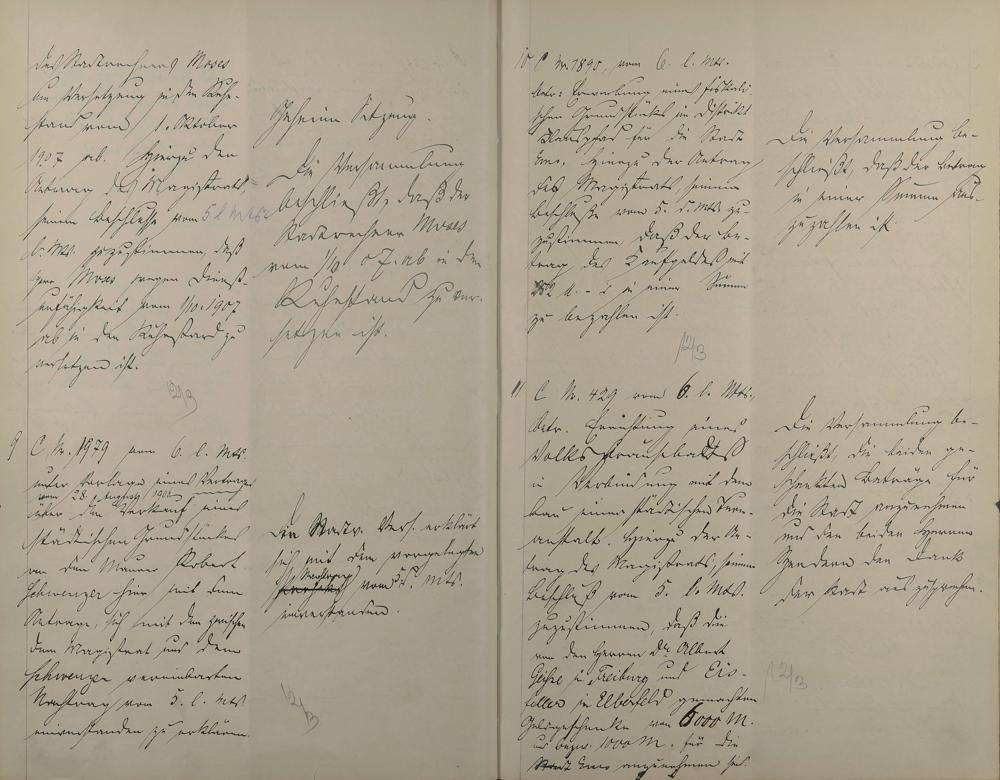 des Stadtrechners Moses
um Versetzung in den Ruhe-
stand vom 1. Oktober
1907 ab. Hierzu der
Antrag des Magistrats,
seinem Beschlusse vom 5 l. Mts.
l. Mts. zuzustimmen, daß
Herr Moses wegen Dienst-
unfähigkeit vom 1/10. 1907
ab in den Ruhestand zu
versetzen ist.
12/3
Geheime Sitzung.
Die Versammlung
beschließt, daß der
Stadtrechner Moses
vom 1/10 07. ab in den
Ruhestand zu ver-
setzen ist.
9 C. Nr. 1979 vom 6. l. Mts.
unter Vorlage eines Vertrages
vom 28. August 190
über den Verkauf eines
städtischen Grundstückes
an den Maurer Robert
Schwenzer hier mit dem
Antrage, sich mit dem zwischen
dem Magistrat und dem
Schwenzer vereinbarten
Nachtrag vom 5. l. Mts
einverstanden zu erklären.
Die Stadtv. Vers. erklärt
sich mit dem vorgelegten
Nachtrag vom 5. d. Mts.
einverstanden.
12/3
10 C Nr. 1895, vom 6. l. Mts.
betr: Erwerbung eines fiskali-
schen Grundstücks im Distrikt
für die Stadt
Hierzu der Antrag
des Magistrats, seinem
Beschlusse vom 5. d. Mts zu-
zustimmen, daß der Be-
trag des Kaufgeldes mit
252 M. in einer Summe
zu bezahlen ist.
12/3
Die Versammlung be-
schließt, daß der Betrag
in einer Summe aus-
zuzahlen ist.
11 C Nr. 429 vom 6. l. Mts.
betr. Errichtung eines
Volksbrausebades
in Verbindung mit dem
Bau einer städtischen Turn-
anstalt. Hierzu der An-
trag des Magistrats, seinem
Beschluß vom 5. l. Mts.
zuzustimmen, daß die
von den Herren Dr. Albert
in Freiburg und Eis-
feller in Elberfeld gemachten
Geldgeschenke von 6000 M.
und bezw. 1000 M. für die
Stadt anzunehmen sei.
Die Versammlung be-
schließt, die beiden ge-
schenkten Beträge für
die Stadt anzunehmen
und den beiden Herren
Spendern den Dank
der Stadt auszusprechen.
12/3